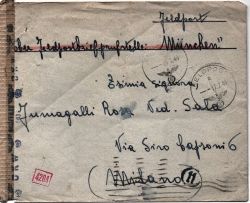 Feldpost
über Feldpostbriefprüfstelle: "München"
FELDPOST
Esimia Signora,
Fumagalli Rosa Ved. Sala
Via Siro Capsoni 6
(Milano) 11
4204